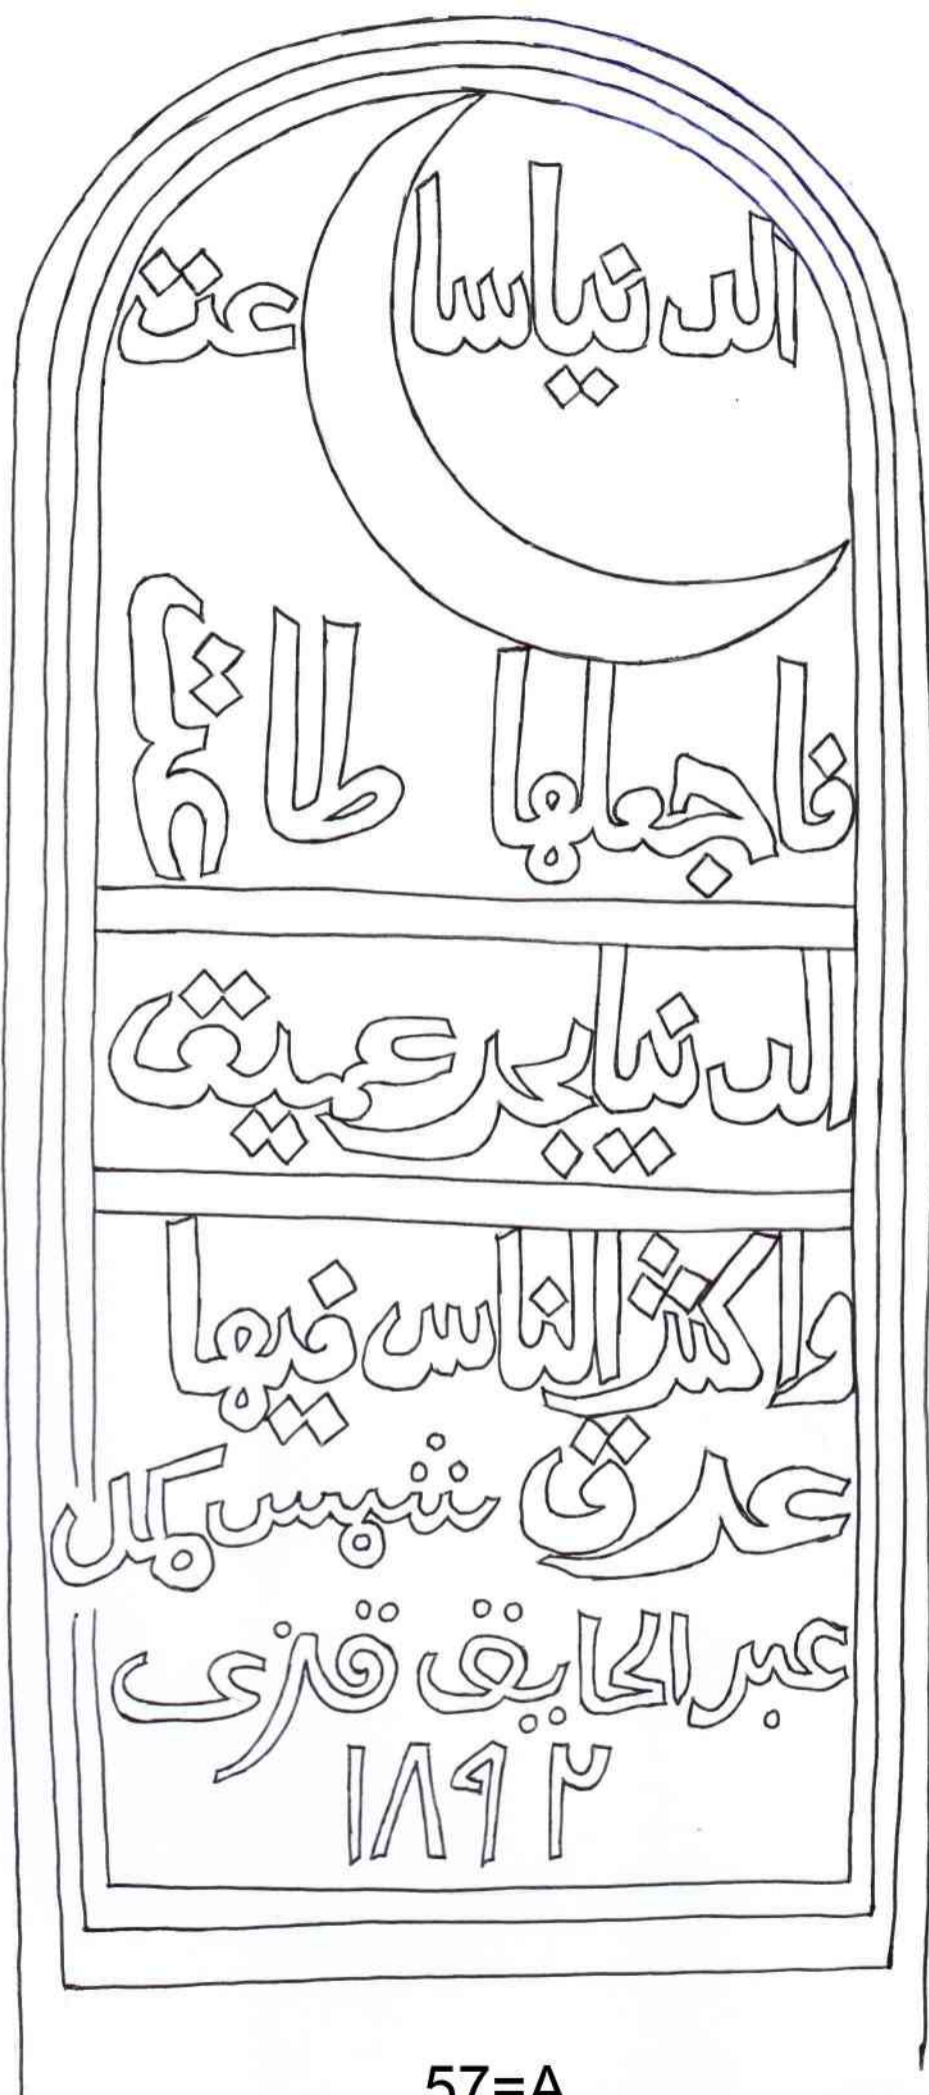 الدنيا ساعت
فاجعلها طاعة
الدنيا بحر عميق
واكثر الناس فيها
عرق شمس
عبد قزى
١٨٩٢
57=A